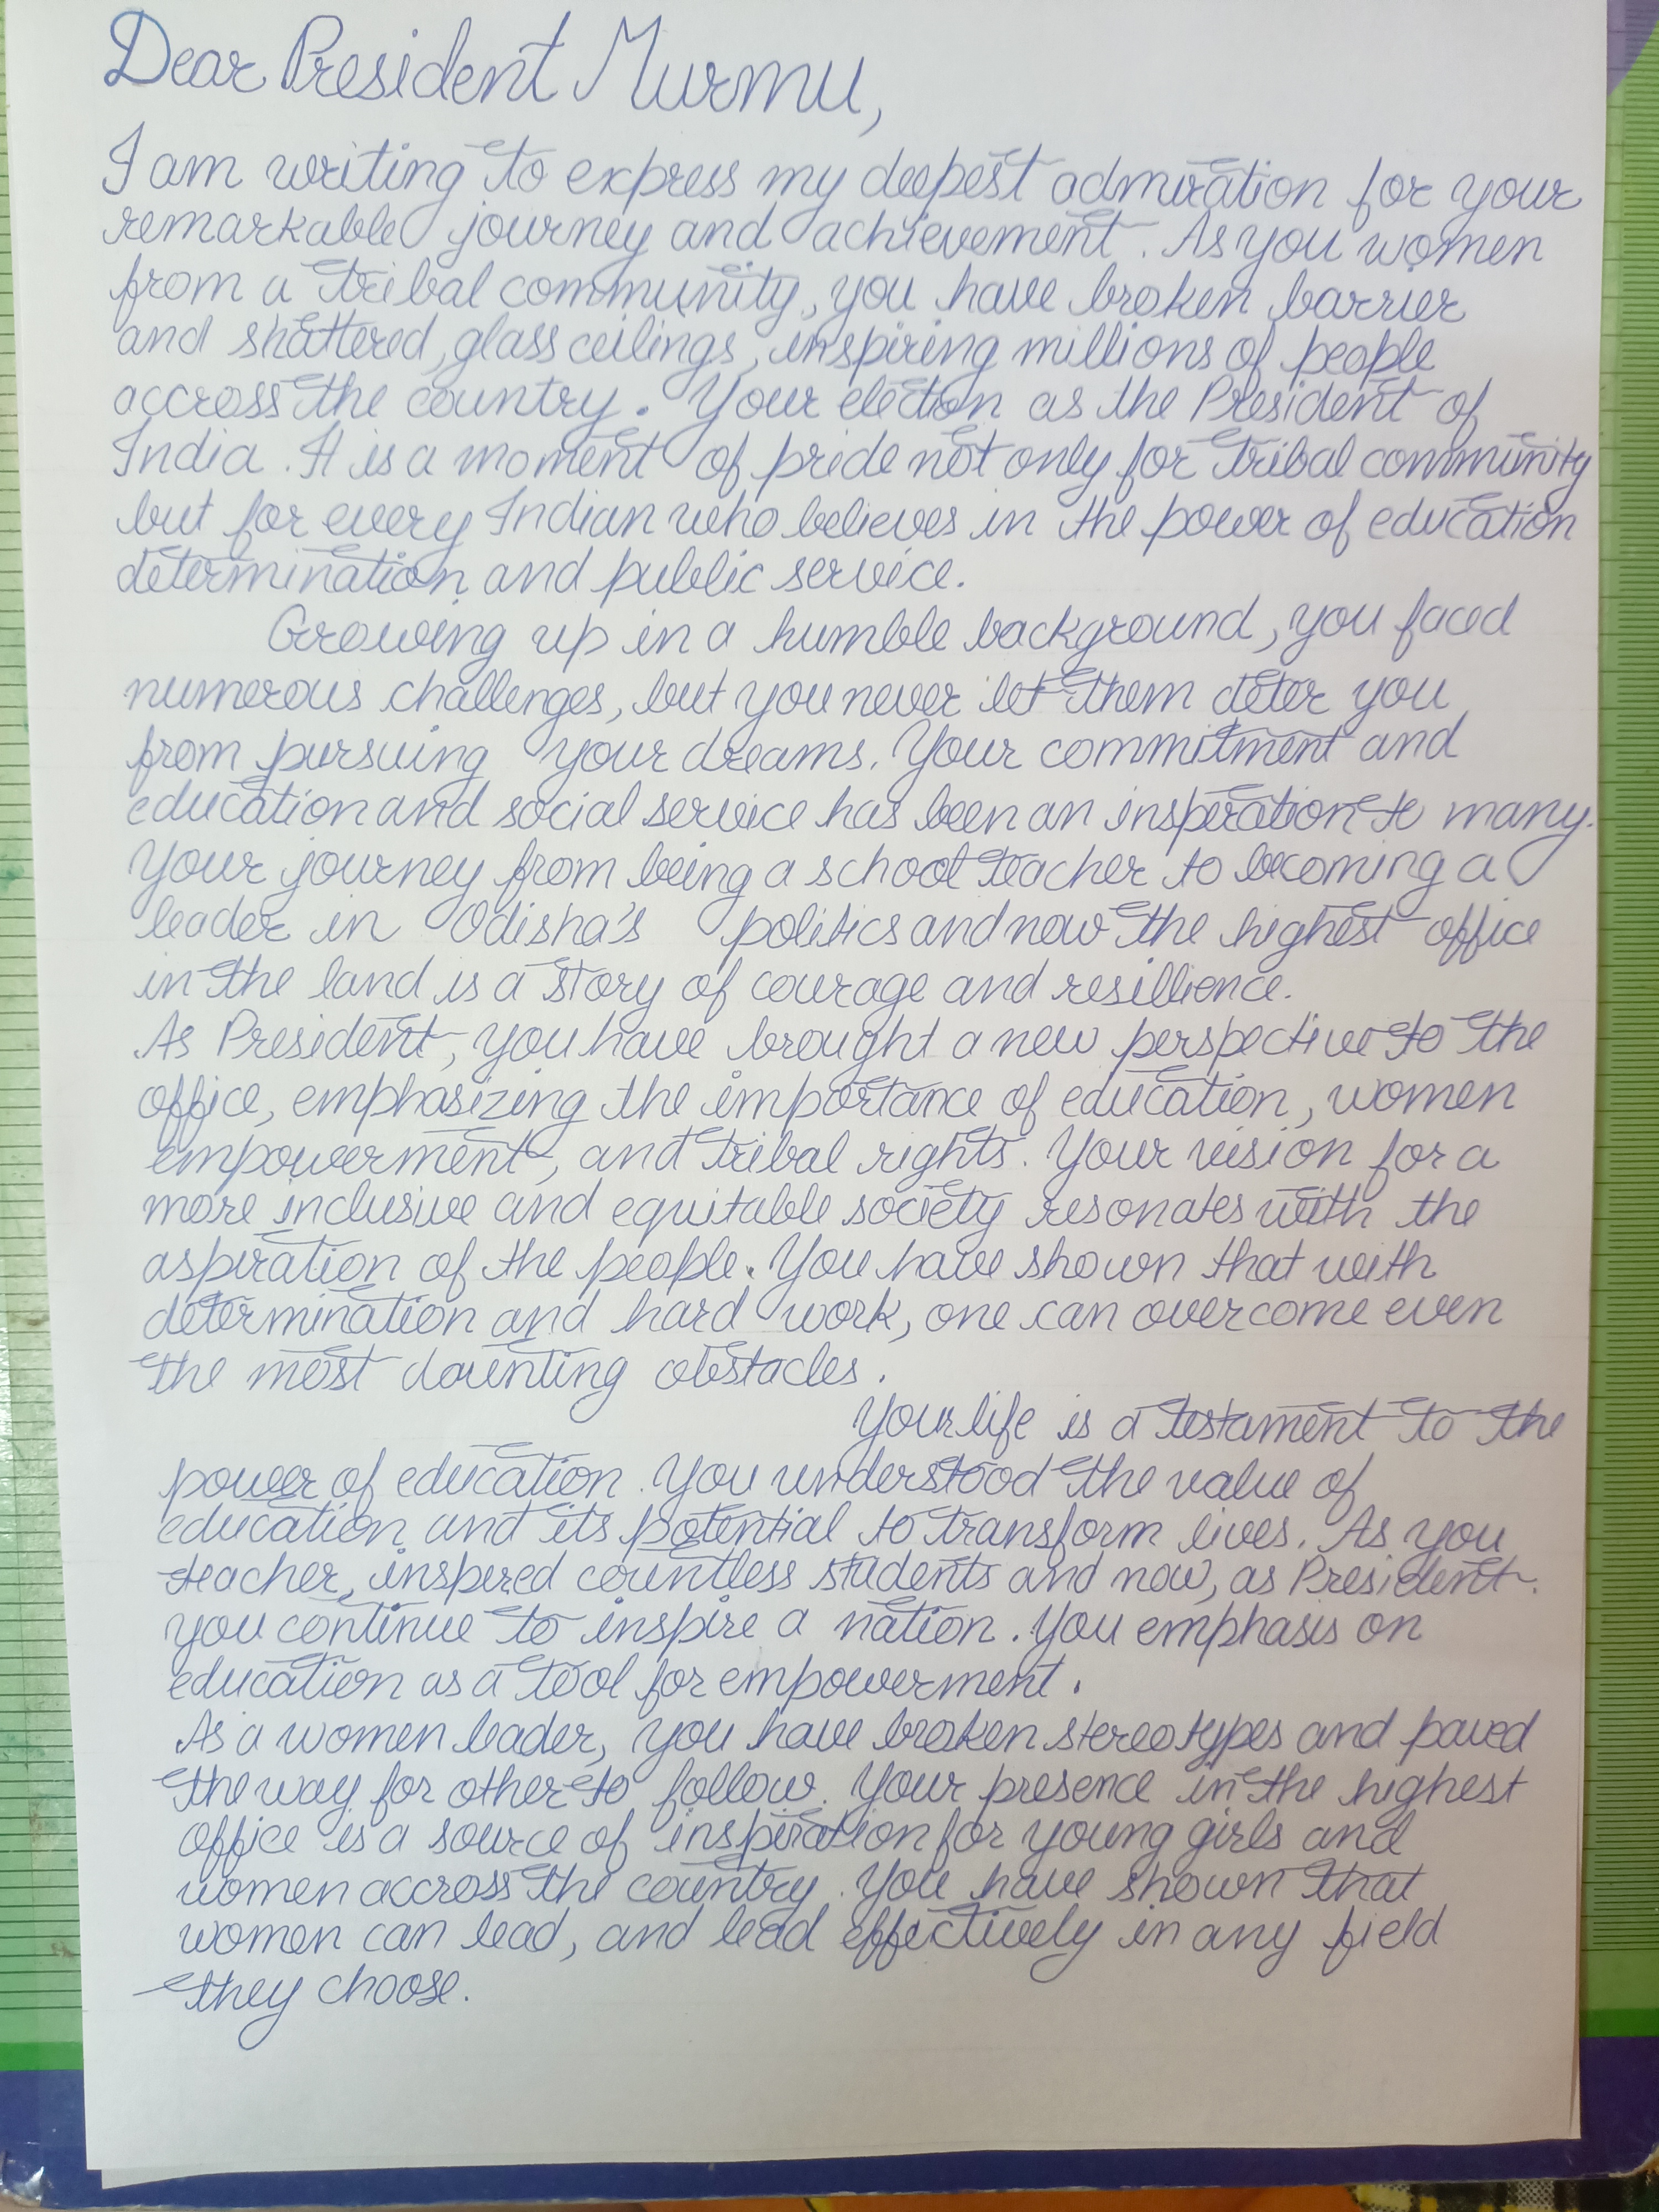 Dear President Murmu,
I am writing to express my deepest admiration for your
remarkable journey and achievement. As you women
from a tribal community, you have broken barrier
and shattered glass ceilings, inspiring millions of people
accross the country. Your election as the President of
India. It is a moment of pride not only for tribal community
but for every Indian who believes in the power of education
determination and public service.
Growing up in a humble background, you faced
numerous challenges, but you never let them deter you
from pursuing your dreams. Your commitment and
education and social service has been an inspiration to many.
Your journey from being a school teacher to becoming a
leader in Odisha's politics and now the highest office
in the land is a story of courage and resillience.
As President, you have brought a new perspective to the
office, emphasizing the importance of education, women
empowerment, and tribal rights. Your vision for a
more inclusive and equitable society resonates with the
aspiration of the people. You have shown that with
determination and hard work, one can overcome even
the most daunting obstacles.
Your life is a testament to the
power of education. You understood the value of
education and its potential to transform lives. As you
teacher, inspired countless students and now, as President.
you continue to inspire a nation. You emphasis on
education as a tool for empowerment.
As a women leader, you have broken stereotypes and paved
the way for other to follow. Your presence in the highest
office is a source of inspiration for young girls and
women accross the country. You have shown that
women can lead, and lead effectively in any field
they choose.